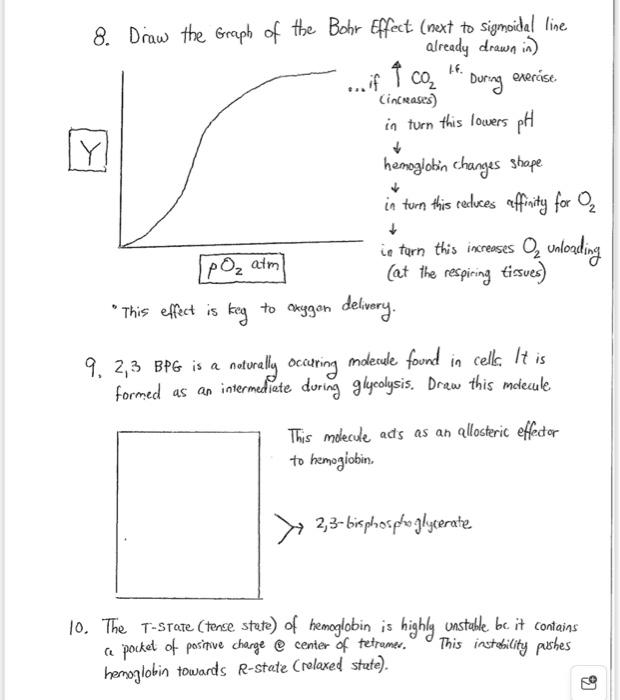 8. Draw the Graph of the Bohr Effect (next to sigmoidal line
already drawn in)
...if ↑ CO₂ I.f. During exercise.
(increases)
in turn this lowers pH
↓
hemoglobin changes shape
↓
in turn this reduces affinity for O₂
↓
in turn this increases O₂ unloading
(at the respiring tissues)
Y
pO₂ atm
*This effect is key to oxygen delivery.
9. 2,3 BPG is a naturally occuring molecule found in cells. It is
formed as an intermediate during glycolysis. Draw this molecule
This molecule acts as an allosteric effector
to hemoglobin.
2,3-bisphosphoglycerate
10. The T-state (tense state) of hemoglobin is highly unstable bc it contains
a pocket of positive charge @ center of tetramer. This instability pushes
hemoglobin towards R-state (relaxed state).